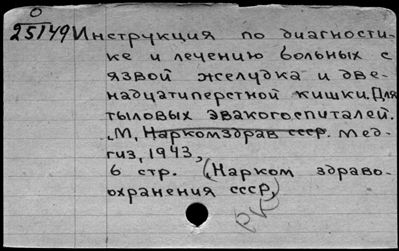 О
25149 Инструкция по диагности-
ке и лечению больных с
язвой желудка и две-
надцатиперстной кишки. Для
тыловых эвакогоспиталей.
М, Наркомздрав ссср. Мед-
гиз, 1943,
6 стр. (Нарком здраво-
охранения ссср)
РК